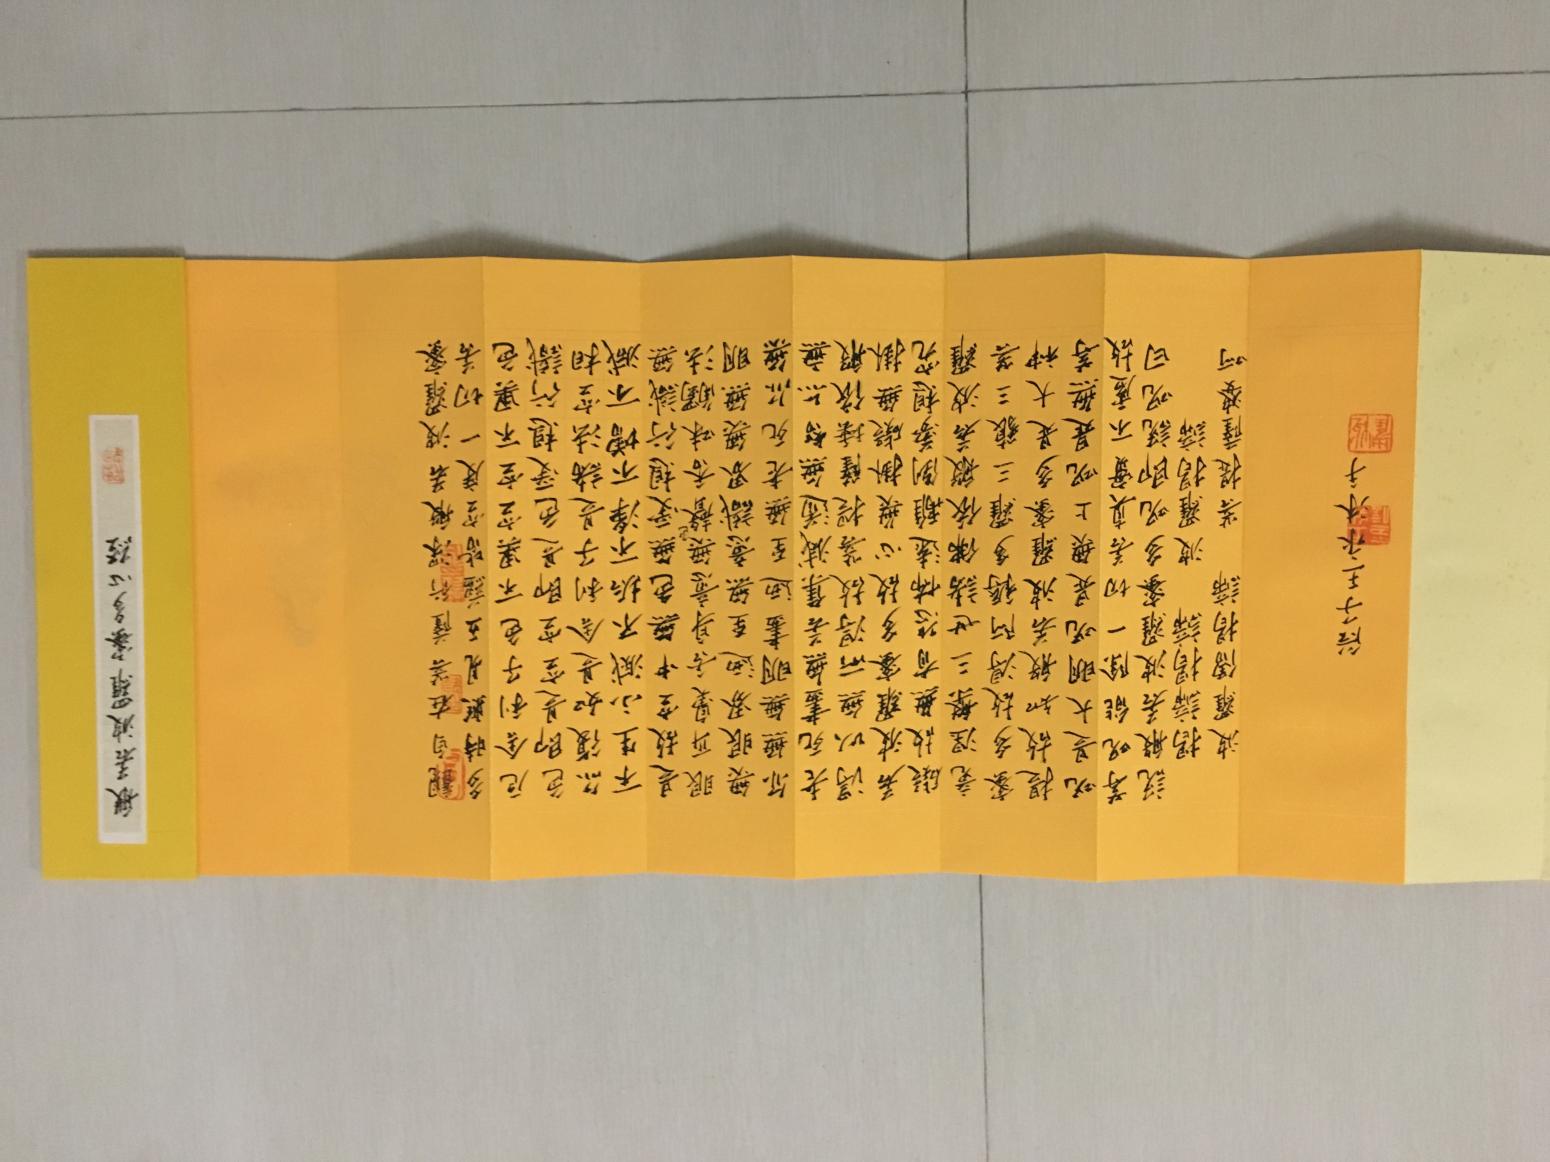 般若波羅蜜多心經
觀自在菩薩行深般若波羅蜜
多時照見五蘊皆空度一切苦
厄舍利子色不異空空不異色
色即是空空即是色受想行識
亦復如是舍利子是諸法空相
不生不滅不垢不淨不增不減
是故空中無色無受想行識無
眼耳鼻舌身意無色聲香味觸法
無眼界乃至無意識界無無明
亦無無明盡乃至無老死亦無
老死盡無苦集滅道無智亦無
得以無所得故菩提薩埵依般
若波羅蜜多故心無掛礙無掛
礙故無有恐怖遠離倒夢想究
竟涅槃三世諸佛依般若波羅
蜜多故得阿耨多羅三藐三菩
提故知般若波羅蜜多是大神
咒是大明咒是無上咒是無等
等咒能除一切苦真實不虛故
說般若波羅蜜多咒即說咒曰
揭諦揭諦 波羅揭諦
波羅僧揭諦 菩提薩婆訶
子王永